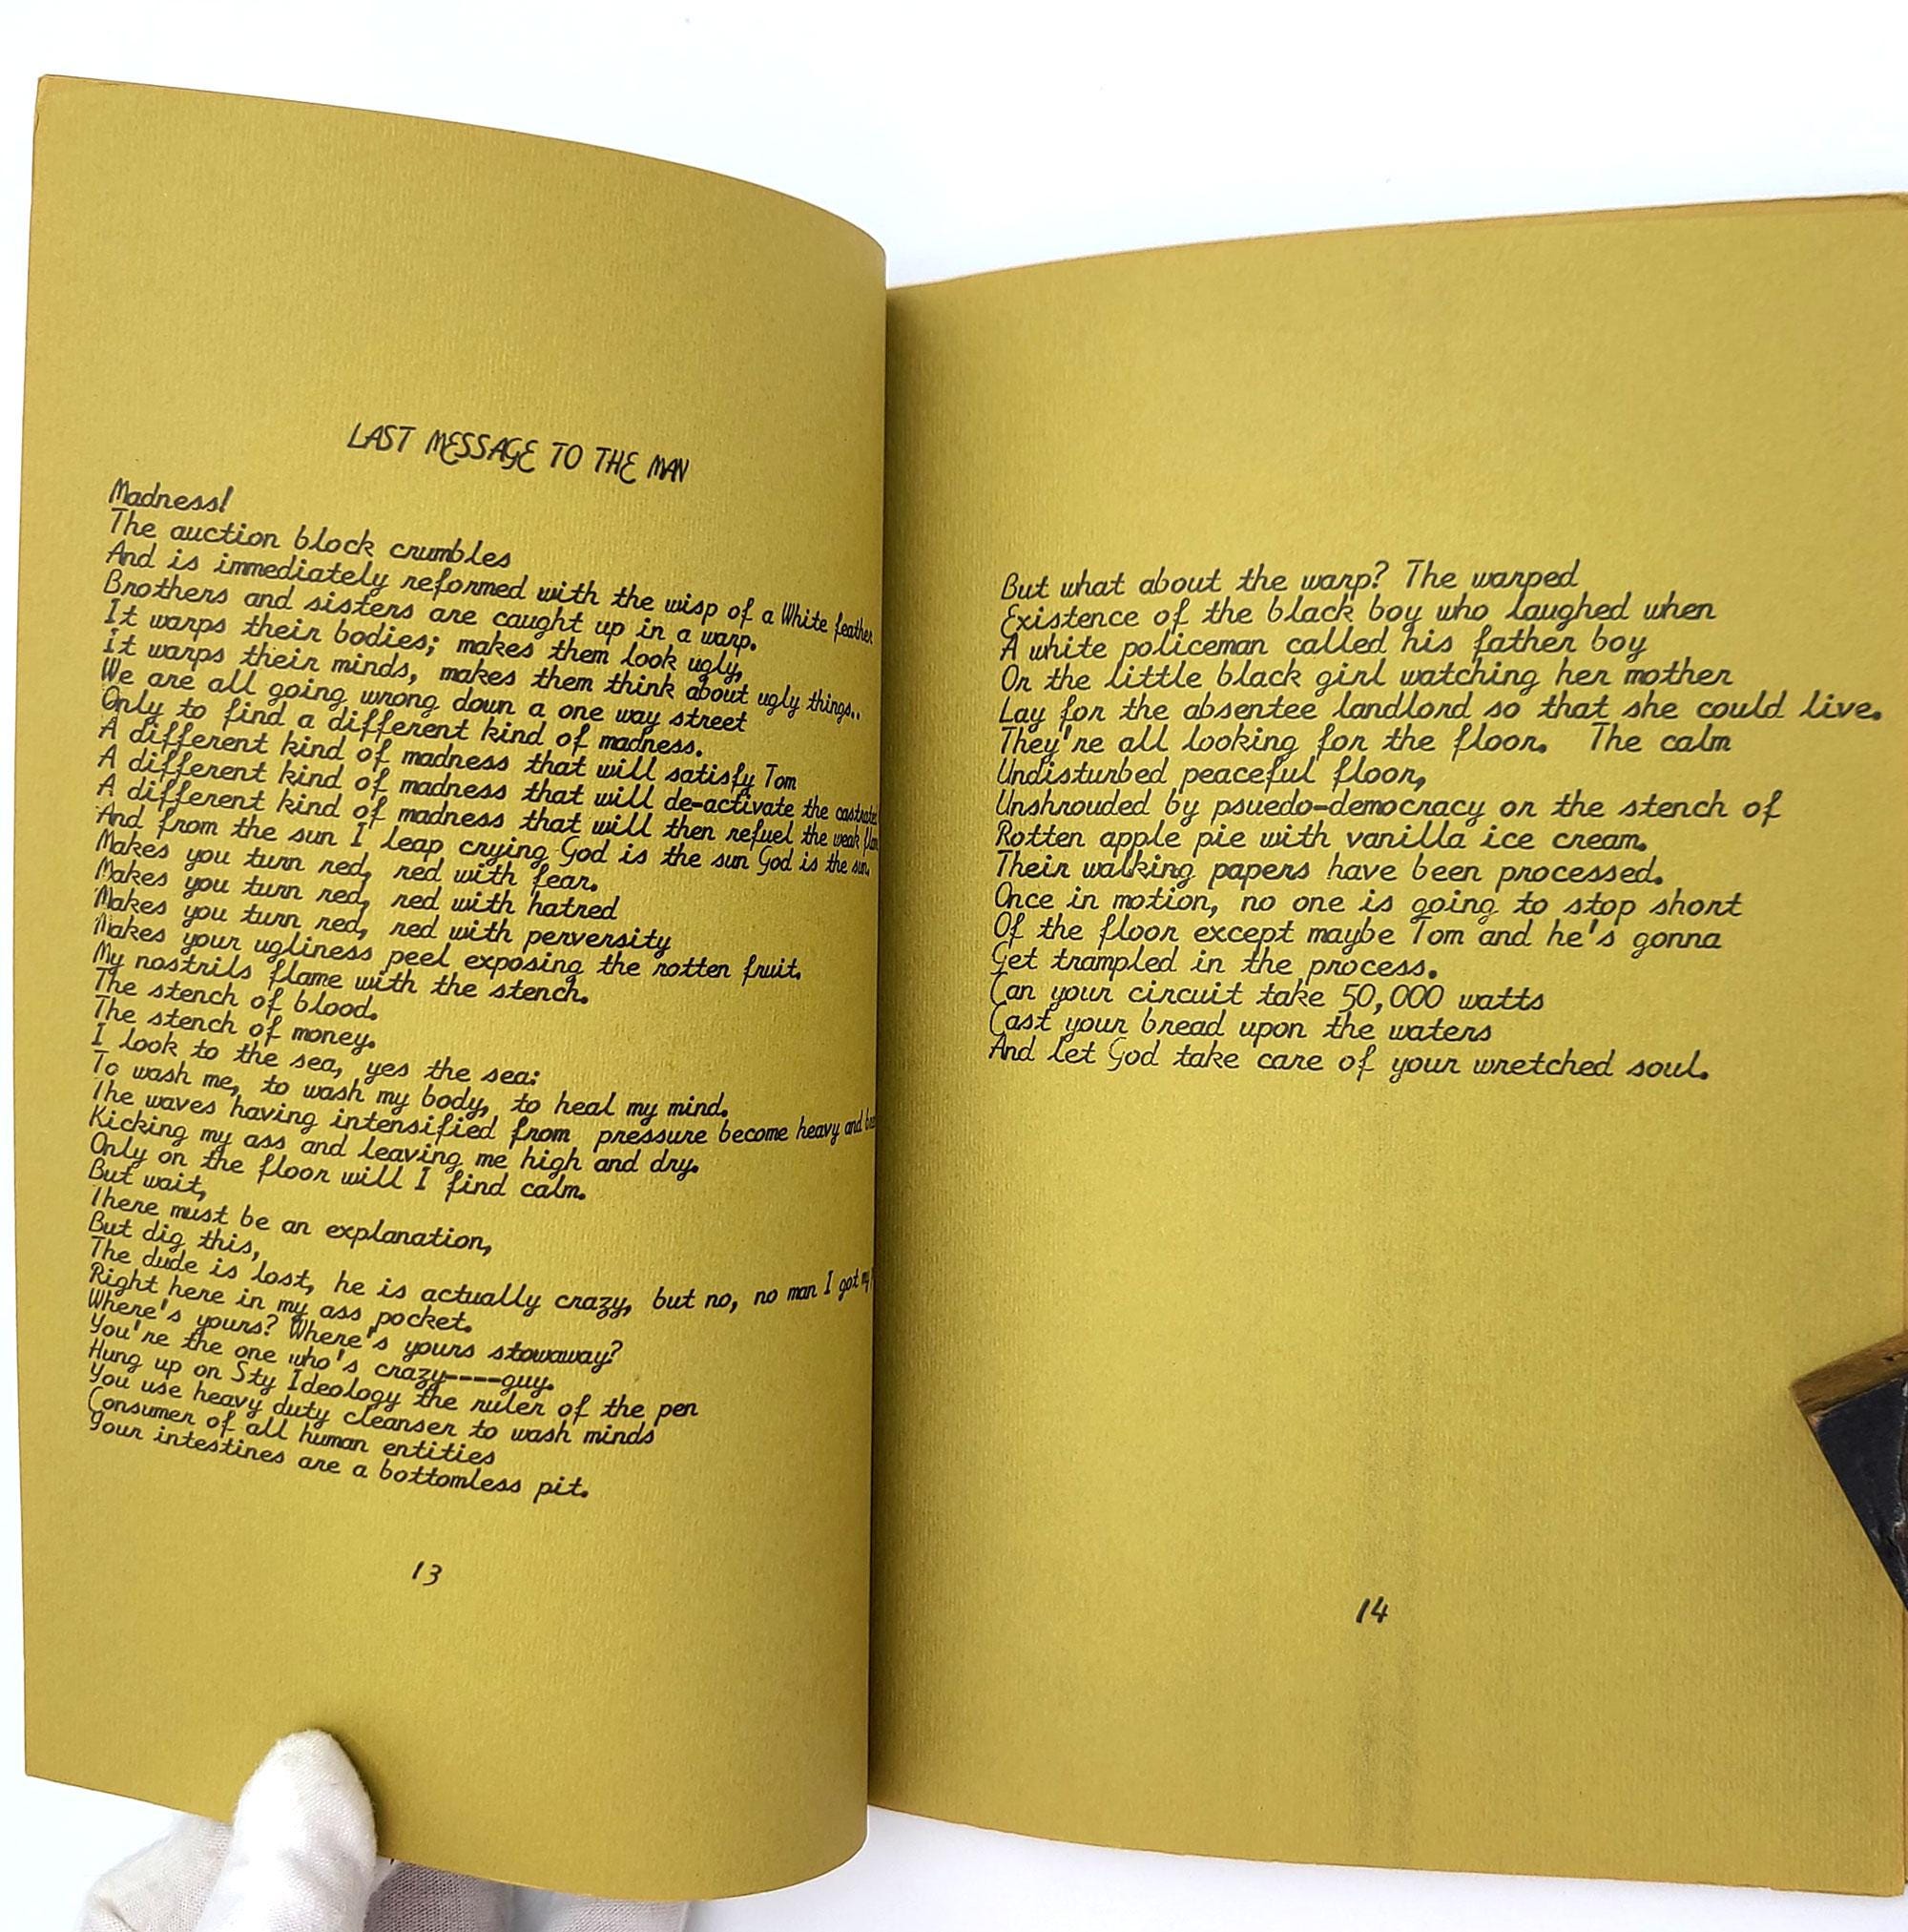 LAST MESSAGE TO THE MAN
Madness!
The auction block crumbles
And is immediately reformed with the wisp of a White feather
Brothers and sisters are caught up in a warp.
It warps their bodies; makes them look ugly,
It warps their minds, makes them think about ugly things..
We are all going wrong down a one way street
Only to find a different kind of madness.
A different kind of madness that will satisfy Tom
A different kind of madness that will de-activate the
A different kind of madness that will then refuel the weak
And from the sun I leap crying God is the sun God is the sun.
Makes you turn red, red with fear.
Makes you turn red, red with hatred
Makes you turn red, red with perversity
Makes your ugliness peel exposing the rotten fruit.
My nostrils flame with the stench.
The stench of blood.
The stench of money.
I look to the sea, yes the sea:
To wash me, to wash my body, to heal my mind.
The waves having intensified from pressure become heavy and
Kicking my ass and leaving me high and dry.
Only on the floor will I find calm.
But wait,
There must be an explanation,
But dig this,
The dude is lost, he is actually crazy, but no, no man I got my
Right here in my ass pocket.
Where's yours? Where's yours stowaway?
You're the one who's crazy----guy.
Hung up on Sty Ideology the ruler of the pen
You use heavy duty cleanser to wash minds
Consumer of all human entities
Your intestines are a bottomless pit.
13
But what about the warp? The warped
Existence of the black boy who laughed when
A white policeman called his father boy
Or the little black girl watching her mother
Lay for the absentee landlord so that she could live.
They're all looking for the floor. The calm
Undisturbed peaceful floor,
Unshrouded by psuedo-democracy or the stench of
Rotten apple pie with vanilla ice cream.
Their walking papers have been processed.
Once in motion, no one is going to stop short
Of the floor except maybe Tom and he's gonna
Get trampled in the process.
Can your circuit take 50,000 watts
Cast your bread upon the waters
And let God take care of your wretched soul.
14